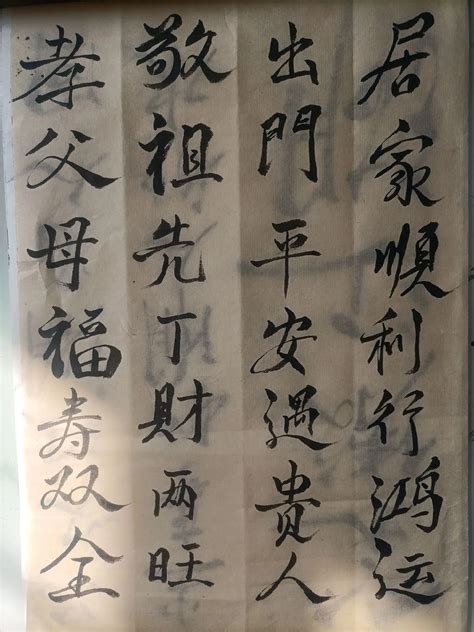 居家順利行鸿运
出門平安遇貴人
敬祖先丁財两旺
孝父母福寿双全